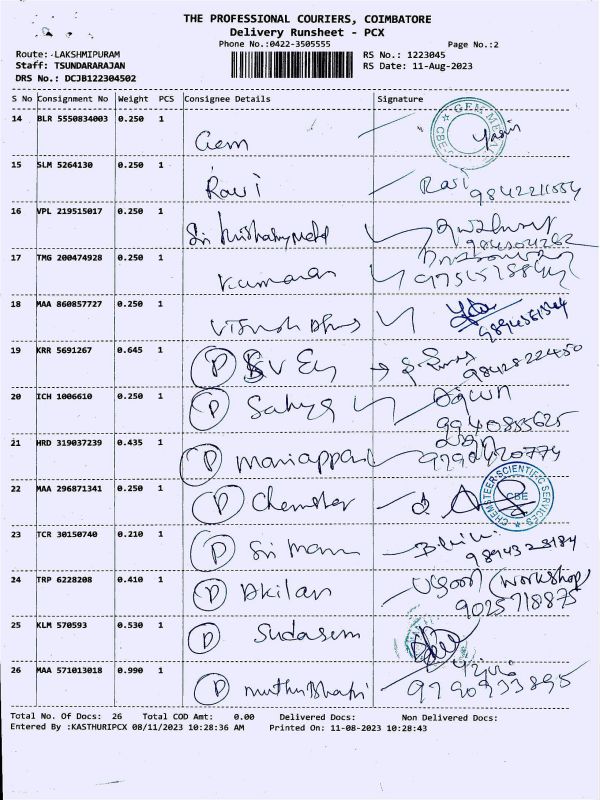 THE PROFESSIONAL COURIERS, COIMBATORE
Delivery Runsheet - PCX
Phone No.:0422-3505555 Page No.:2
Route: -LAKSHMIPURAM RS No.: 1223045
Staff: TSUNDARARAJAN RS Date: 11-Aug-2023
DRS No.: DCJB122304502
S No Consignment No Weight PCS Consignee Details Signature
14 BLR 5550834003 0.250 1 Gem
15 SLM 5264130 0.250 1 Ravi Ravi
16 VPL 219515017 0.250 1 Sri
17 TMG 200474928 0.250 1 Kumaran
18 MAA 860857727 0.250 1
19 KRR 5691267 0.645 1 P 9842822450
20 ICH 1006610 0.250 1 P Sahya 9940855625
21 HRD 319037239 0.435 1 P Mariappan
22 MAA 296871341 0.250 1 P Chemster CHEMSTEER SCIENTIFIC SERVICES CBE
23 TCR 30150740 0.210 1 P Sri Mann
24 TRP 6228208 0.410 1 P Akilan (Workshop)
9025718875
25 KLM 570593 0.530 1 P Sudasem
26 MAA 571013018 0.990 1 P 9790933895
Total No. Of Docs: 26 Total COD Amt: 0.00 Delivered Docs: Non Delivered Docs:
Entered By :KASTHURIPCX 08/11/2023 10:28:36 AM Printed On: 11-08-2023 10:28:43